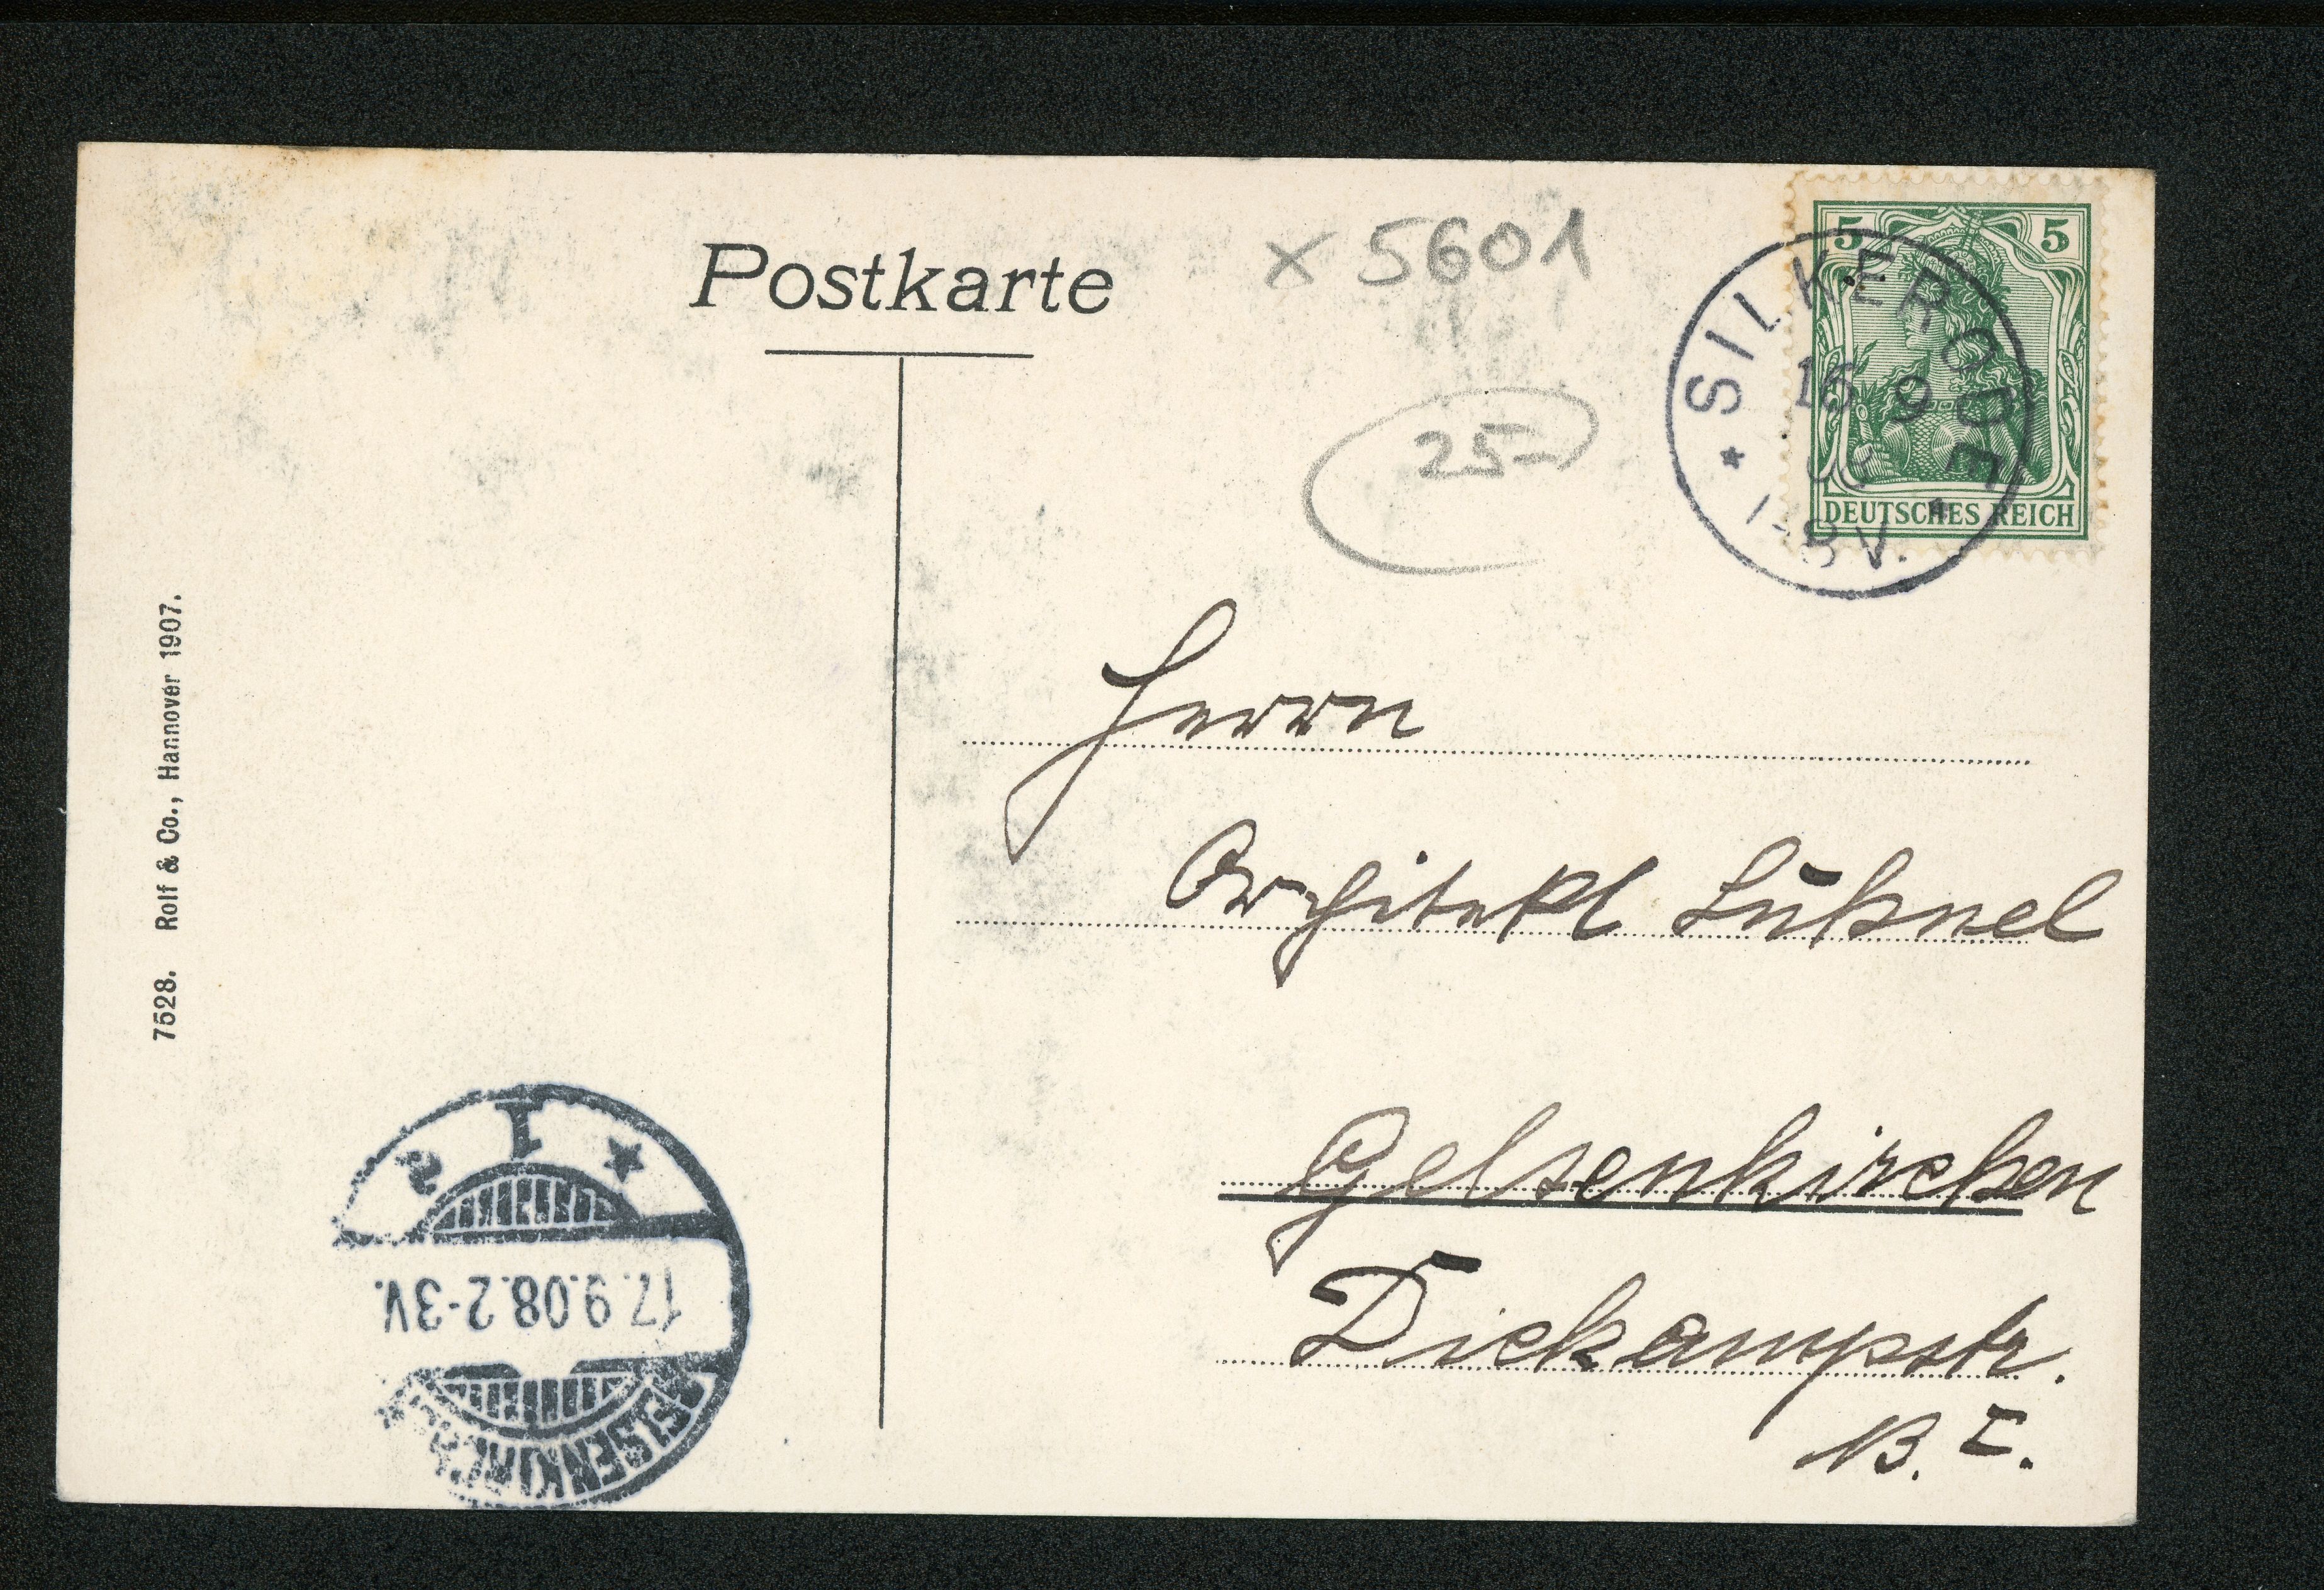 Postkarte
x 5601
25-
5 5
DEUTSCHES REICH
* SILKERODE *
16 9
1-8V.
Herrn
Architekt
Gelsenkirchen
Dickampstr.
7528. Rolf & Co., Hannover 1907.
* 1 s
17.9.08.2-3V.
GELSENKIRCHEN